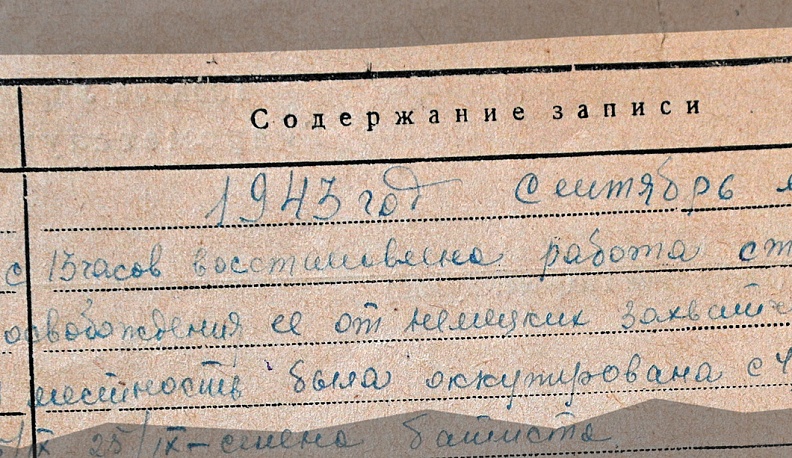 Содержание записи
1943 год сентябрь м
с 13 часов восстановлена работа ст
освобождения ее от немецких захват
местность была оккупирована с 4
25/IX - смена